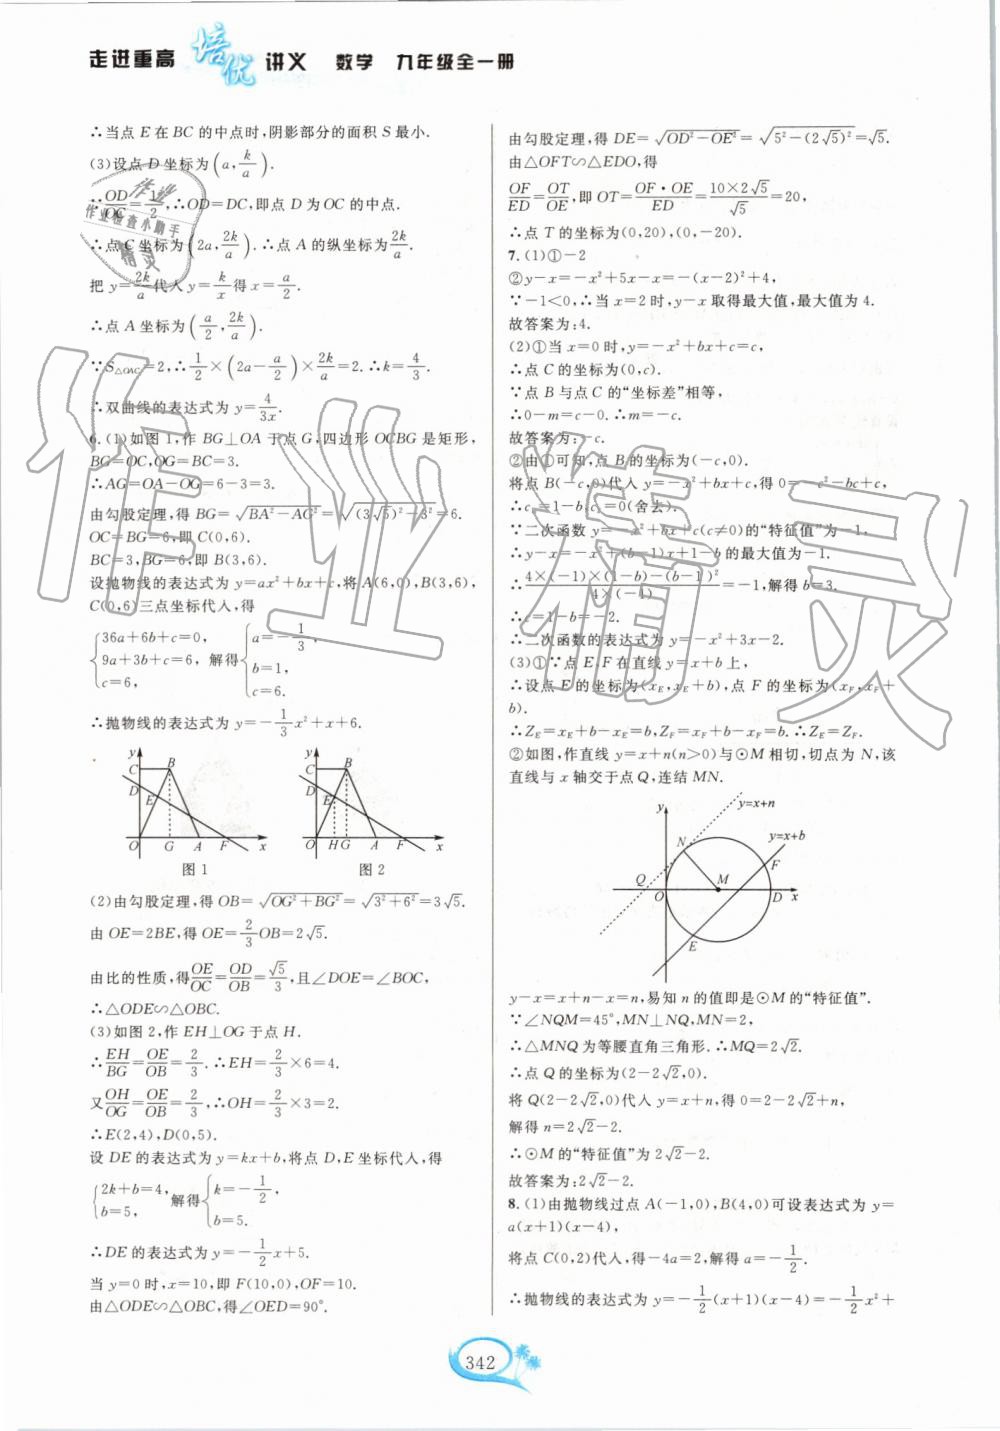 走进重高 培优 讲义 数学 九年级全一册
∴当点 E 在 BC 的中点时,阴影部分的面积 S 最小.
(3)设点 D 坐标为(a,k/a).
∵OD/OC=1/2,∴OD=DC,即点 D 为 OC 的中点.
∴点 C 坐标为(2a,2k/a).∴点 A 的纵坐标为2k/a.
把 y=2k/a代入 y=k/x得 x=a/2.
∴点 A 坐标为(a/2,2k/a).
∵S△OAC=2,∴1/2×(2a-a/2)×2k/a=2.∴k=4/3.
∴双曲线的表达式为 y=4/3x.
6.(1)如图 1,作 BG⊥OA 于点 G,四边形 OCBG 是矩形,
BG=OC,OG=BC=3.
∴AG=OA-OG=6-3=3.
由勾股定理,得 BG=√(BA²-AG²)=√((3√5)²-3²)=6.
OC=BG=6,即 C(0,6).
BC=3,BG=6,即 B(3,6).
设抛物线的表达式为 y=ax²+bx+c,将 A(6,0),B(3,6),
C(0,6)三点坐标代入,得
{36a+6b+c=0, 9a+3b+c=6, c=6, 解得{a=-1/3, b=1, c=6.
∴抛物线的表达式为 y=-1/3x²+x+6.
y C B D E O G A F x
图 1
y C B D E O H G A F x
图 2
(2)由勾股定理,得 OB=√(OG²+BG²)=√(3²+6²)=3√5.
由 OE=2BE,得 OE=2/3OB=2√5.
由比的性质,得OE/OC=OD/OB=√5/3,且∠DOE=∠BOC,
∴△ODE∽△OBC.
(3)如图 2,作 EH⊥OG 于点 H.
∴EH/BG=OE/OB=2/3.∴EH=2/3×6=4.
又OH/OG=OE/OB=2/3,∴OH=2/3×3=2.
∴E(2,4),D(0,5).
设 DE 的表达式为 y=kx+b,将点 D,E 坐标代入,得
{2k+b=4, b=5, 解得{k=-1/2, b=5.
∴DE 的表达式为 y=-1/2x+5.
当 y=0 时,x=10,即 F(10,0),OF=10.
由△ODE∽△OBC,得∠OED=90°.
由勾股定理,得 DE=√(OD²-OE²)=√(5²-(2√5)²)=√5.
由△OFT∽△EDO,得
OF/ED=OT/OE,即 OT=OF·OE/ED=10×2√5/√5=20,
∴点 T 的坐标为(0,20),(0,-20).
7.(1)①-2
②y-x=-x²+5x-x=-(x-2)²+4,
∵-1<0,∴当 x=2 时,y-x 取得最大值,最大值为 4.
故答案为:4.
(2)①当 x=0 时,y=-x²+bx+c=c,
∴点 C 的坐标为(0,c).
∵点 B 与点 C 的“坐标差”相等,
∴0-m=c-0.∴m=-c.
故答案为:-c.
②由①可知,点 B 的坐标为(-c,0).
将点 B(-c,0)代入 y=-x²+bx+c,得 0=-c²-bc+c,
∴c₁=1-b,c₂=0(舍去).
∵二次函数 y=-x²+bx+c(c≠0)的“特征值”为-1,
∴y-x=-x²+(b-1)x+1-b 的最大值为-1.
∴4×(-1)×(1-b)-(b-1)²/4×(-1)=-1,解得 b=3.
∴c=1-b=-2.
∴二次函数的表达式为 y=-x²+3x-2.
(3)①∵点 E,F 在直线 y=x+b 上,
∴设点 E 的坐标为(xE,xE+b),点 F 的坐标为(xF,xF+
b).
∴ZE=xE+b-xE=b,ZF=xF+b-xF=b.∴ZE=ZF.
②如图,作直线 y=x+n(n>0)与⊙M 相切,切点为 N,该
直线与 x 轴交于点 Q,连结 MN.
y y=x+n y=x+b N F Q O M D x E
y-x=x+n-x=n,易知 n 的值即是⊙M 的“特征值”.
∵∠NQM=45°,MN⊥NQ,MN=2,
∴△MNQ 为等腰直角三角形.∴MQ=2√2.
∴点 Q 的坐标为(2-2√2,0).
将 Q(2-2√2,0)代入 y=x+n,得 0=2-2√2+n,
解得 n=2√2-2.
∴⊙M 的“特征值”为 2√2-2.
故答案为:2√2-2.
8.(1)由抛物线过点 A(-1,0),B(4,0)可设表达式为 y=
a(x+1)(x-4),
将点 C(0,2)代入,得-4a=2,解得 a=-1/2.
∴抛物线的表达式为 y=-1/2(x+1)(x-4)=-1/2x²+
342
作业精灵
作业
作业检查小助手
精灵